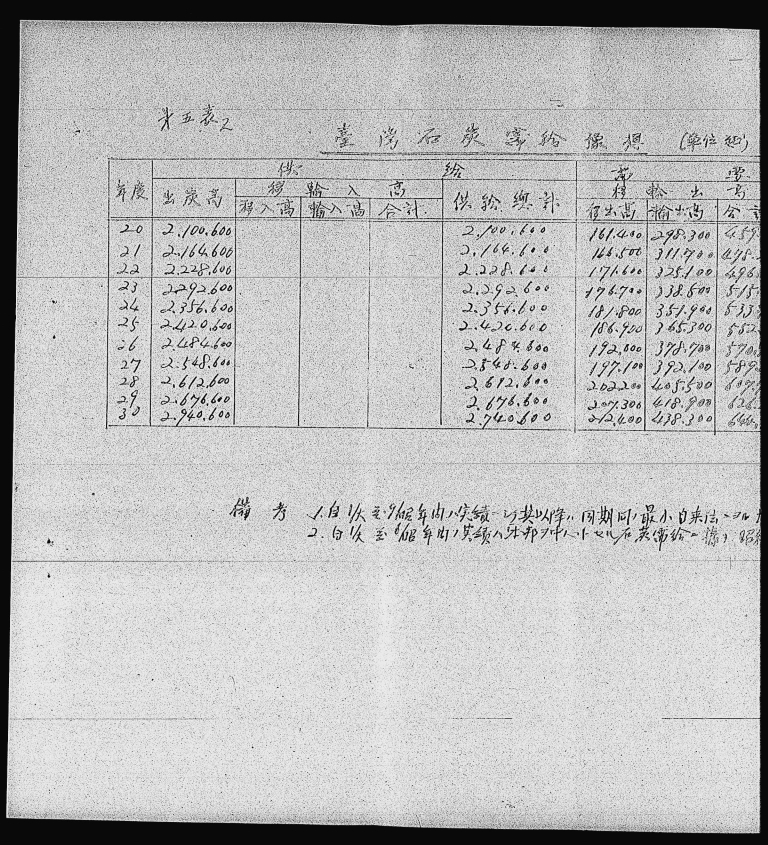 第五表ノ2
臺灣石炭需給豫想 (單位 瓲)
供 給 需
年度 出炭高 移輸入高 供給總計 移輸出高
移入高 輸入高 合計 移出高 輸出高 合計
20 2.100.600 2.100.600 161.400 298.300 459.
21 2.164.600 2.164.600 166.500 311.700 478.
22 2.228.600 2.228.600 171.600 325.100 496.
23 2.292.600 2.292.600 176.700 338.500 515.
24 2.356.600 2.356.600 181.800 351.900 533.
25 2.420.600 2.420.600 186.900 365.300 552.
26 2.484.600 2.484.600 192.000 378.700 570.
27 2.548.600 2.548.600 197.100 392.100 589.
28 2.612.600 2.612.600 202.200 405.500 607.
29 2.676.600 2.676.600 207.300 418.900 626.
30 2.940.600 2.740.600 212.400 438.300 644.
備考 1. 自 大 至 昭 年內ノ実績 以其以降ハ同期間ノ最小自乗法ニヨリ
2. 自 大 至 昭 年內ノ実績ハ 石炭需給ニ據リ 昭和